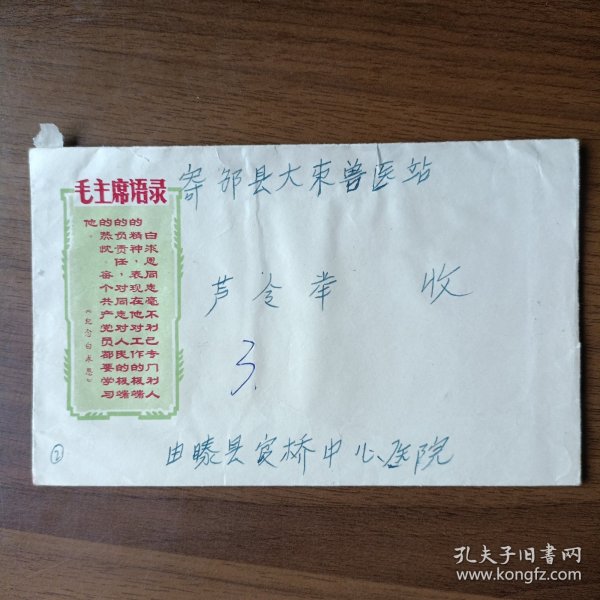 毛主席语录
白求恩同志毫不利己专门利人
的精神，表现在他对工作的极端
的负责任，对同志对人民的极端
的热忱。每个共产党员都要学习
他。
《纪念白求恩》
寄邹县大束兽医站
芦令举 收
3.
②
由滕县官桥中心医院
孔夫子旧书网
www.kongfz.com